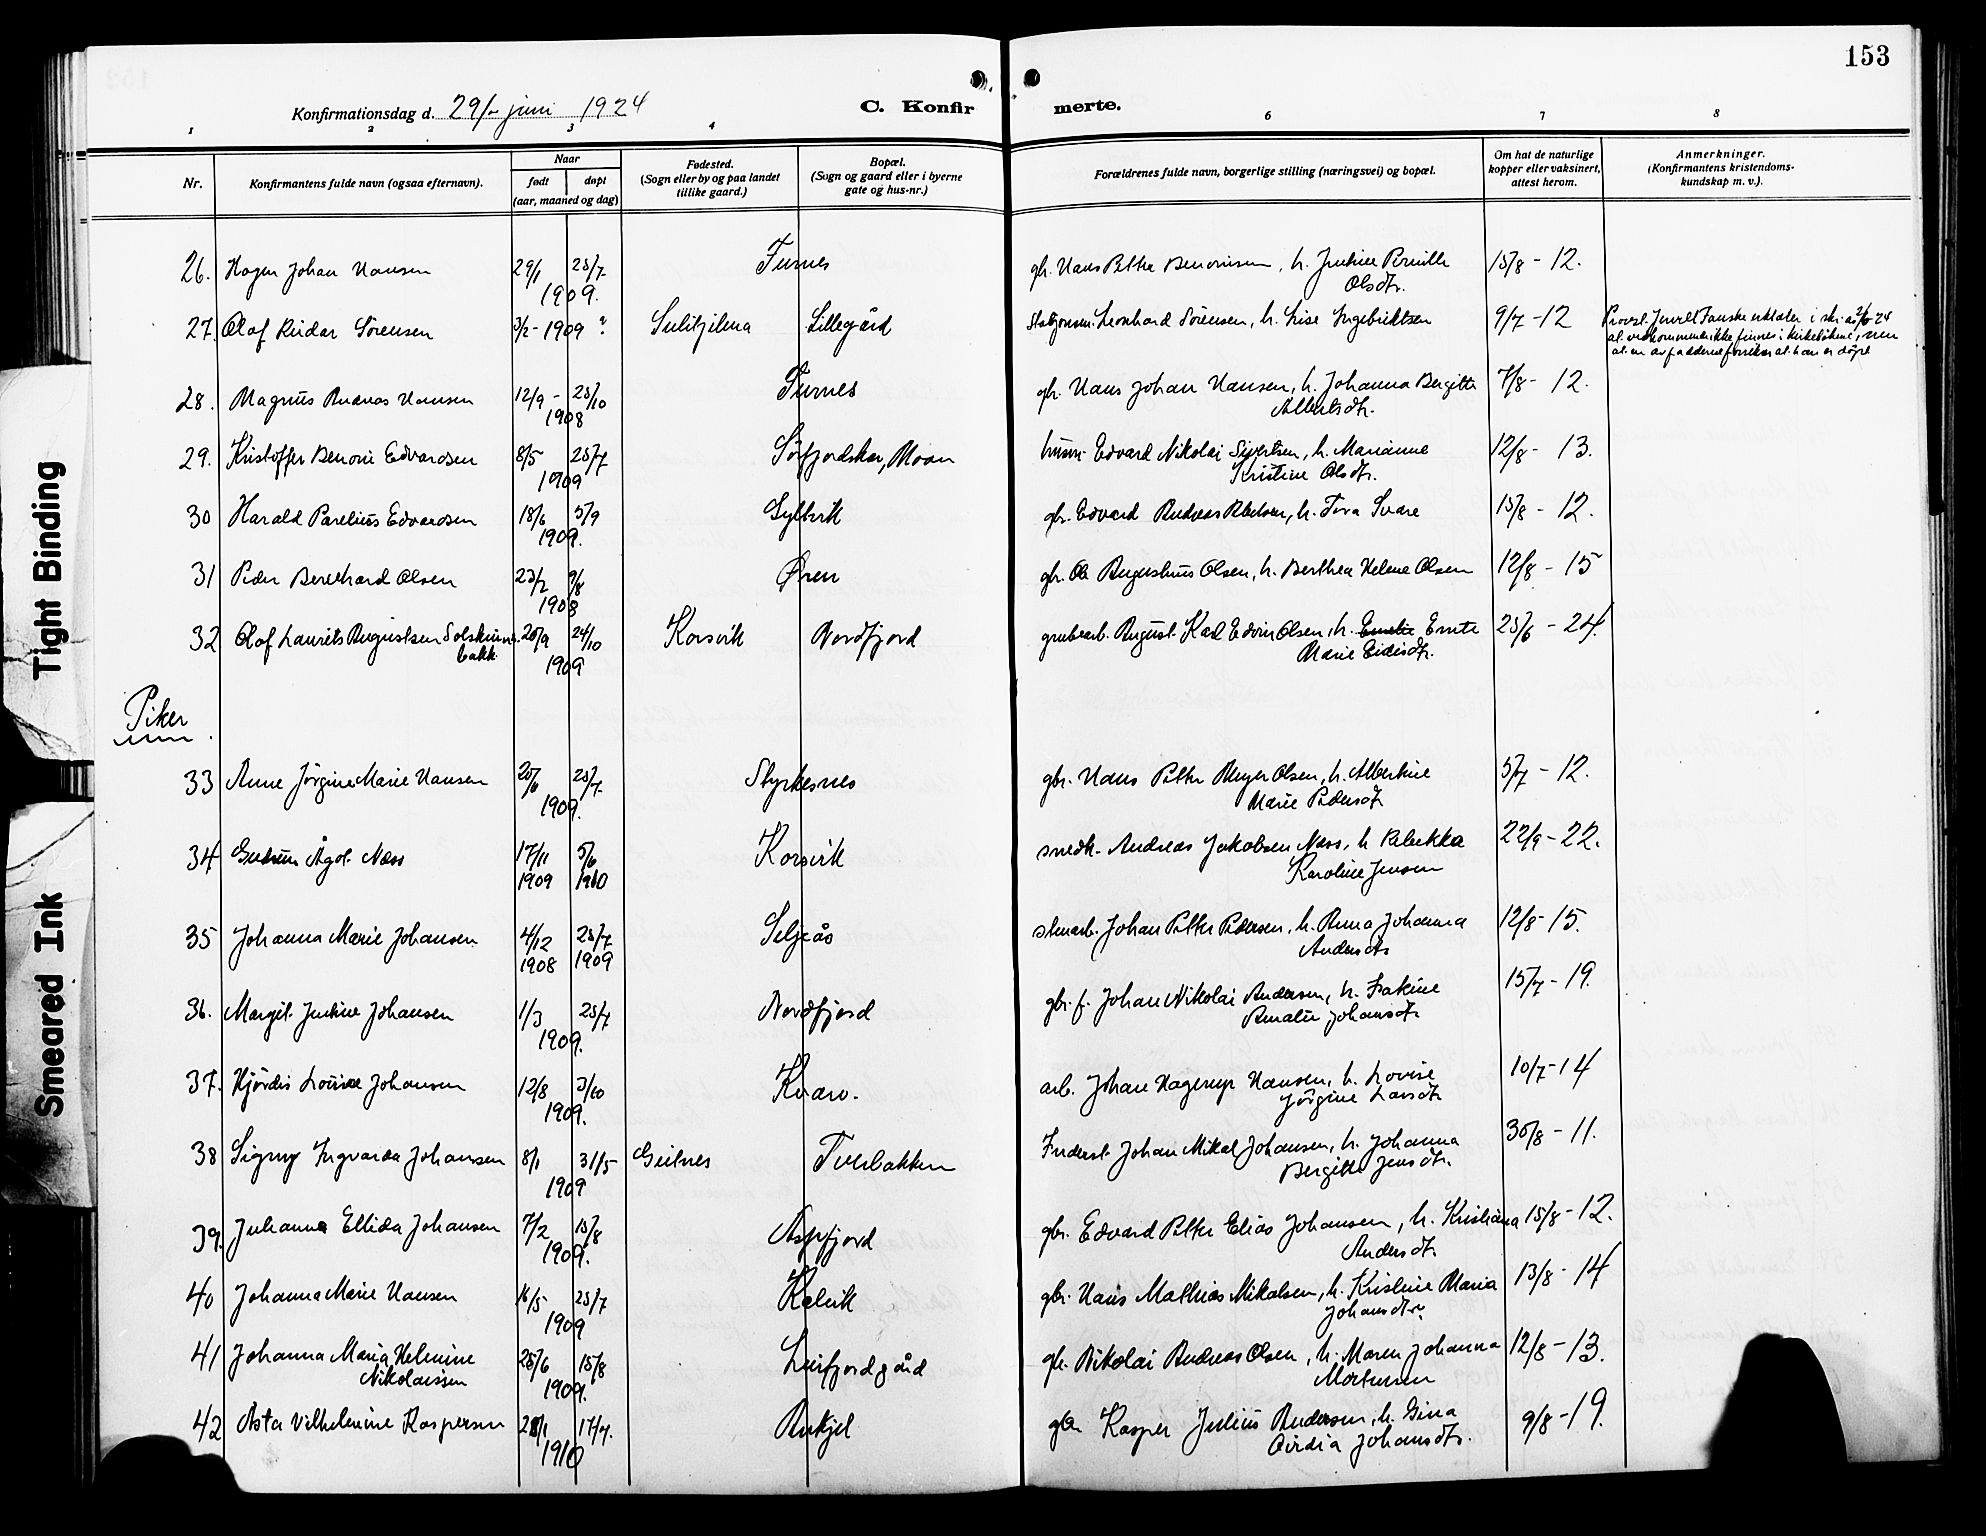 153
Konfirmationsdag d. 29/ juni 1924
C. Konfirmerte.
1 2 3 4 6 7 8
Nr.
Konfirmantens fulde navn (ogsaa efternavn).
Naar
født døpt
(aar, maaned og dag)
Fødested.
(Sogn eller by og paa landet
tillike gaard.)
Bopæl.
(Sogn og gaard eller i byerne
gate og hus-nr.)
Forældrenes fulde navn, borgerlige stilling (næringsvei) og bopæl.
Om hat de naturlige
kopper eller vaksinert,
attest herom.
Anmerkninger.
(Konfirmantens kristendoms-
kundskap m. v.).
26. Hagen Johan Hansen 29/1 25/7 Furnes gbr. Hans Petter Benonisen, h. Justine Pernille 15/8 - 12.
1909. Olsdtr.
27. Olaf Reidar Sörensen 3/2 - 1909 ? Sulitjelma Lillegård Leonhard Sörensen, h. Lise Ingebriktsen 9/7 - 12
28. Magnus Andreas Hansen 12/9 - 25/10 Furnes gbr. Hans Johan Hansen, h. Johanna Bergitte 7/8 - 12.
1908 Albertsdtr.
29. Kristoffer Benoni Edvardsen 8/5 25/7 Sörfjordskar, Moan husm. Edvard Nikolai Sivertsen, h. Marianne 12/8 - 13.
1909 Kristine Olsdtr.
30 Harald Parelius Edvardsen 18/6 5/9 Gyltvik gbr. Edvard Andreas h. Tora Svare 15/8 - 12.
1909.
31 Peder Bernhard Olsen 23/2 9/8 Øren gbr. Ole Augustinus Olsen, h. Berthea Helene Olsen 12/8 - 15
1908
32 Olof Laurits Augustsen Solskinns- 20/9 24/10 Korsvik Nordfjord grubearb. August Karl Edvin Olsen, h. Emilie Emte 25/6 - 24.
bakk 1909 Marie
Piker
33 Anne Jörgine Marie Hansen 20/6 25/7 Styrkesnes gbr. Hans Petter Meyer Olsen, h. Albertine 5/7 - 12.
1909. Marie Pedersdtr
34 Gudrun Ågot Næss 17/11 5/6 Korsvik snedk. Andreas Jakobsen Næss, h. Rebekka 22/9 - 22.
1909 1910 Karoline Jensen
35 Johanna Marie Johansen 4/12 25/7 Seljeås stenarb. Johan Petter Pedersen, h. Anna Johanna 12/8 - 15.
1908 1909 Andersdtr
36. Margit Justine Johansen 1/3 25/7 Nordfjord gbr. f. Johan Nikolai Andersen, h. 15/7 - 19.
1909. Amalie Johansdtr
37. Hjördis Lovise Johansen 12/8 3/10 Kvarv. arb. Johan Hagerup Hansen, h. Lovise 10/7 - 14
1909. Jörgine Larsdtr
38 Signy Ingvarda Johansen 8/1 31/5 Geitnes Tverbakken Inderst Johan Mikal Johansen, h. Johanna 30/8 - 11.
1909 Bergitte Jensdtr.
39. Julianna Ellida Johansen 7/2 15/8 Aspfjord gbr. Edvard Petter Elias Johansen, h. Kristiana 15/8 - 12.
1909. Andersdtr.
40 Johanna Marie Hansen 16/5 25/7 Kalvik gbr. Hans Mathias Mikalsen, h. Kristine Maria 13/8 - 14
1909 Johansdtr.
41 Johanna Maria Helmine 25/6 15/8 Leirfjordgård gbr. Nikolai Andreas Olsen, h. Maren Johanna 12/8 - 13.
Nikolaissen 1909. Mortensen
42 Asta Vilhelmine Kaspersen 28/1 17/4. Ankjel gbr Kasper Julius Andersen, h. Gina 9/8 - 19.
1910 Johansdtr.
Tight Binding
Smeared Ink